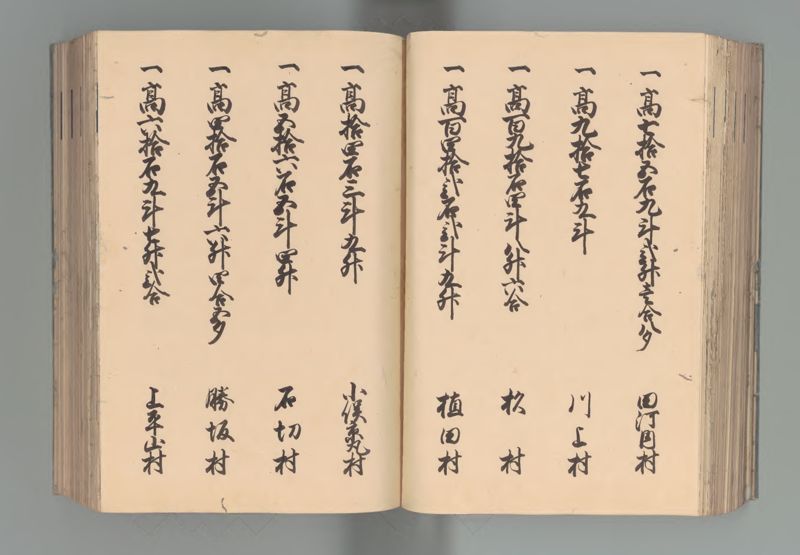 一高七拾五石九斗弐升壱合八夕 田河内村
一高九拾七石九斗 川上村
一高百九拾石四斗八升六合 杉村
一高百四拾弐石弐斗九升 植田村
一高拾四石三斗九升 小俣京丸村
一高五拾六石五斗四升 石切村
一高四拾石五斗六升四合五夕 勝坂村
一高六拾石九斗七升弐合 上平山村